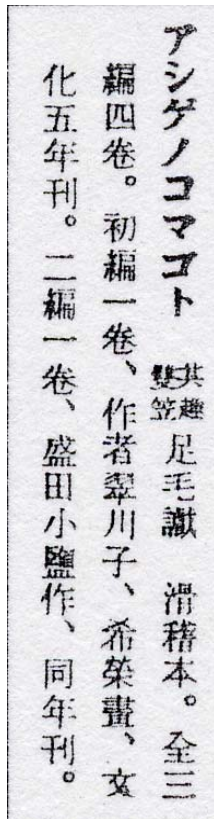 アシゲノコマゴト 其趣雙笠 足毛讞 滑稽本。全三
編四卷。初編一卷、作者翠川子、希榮畫、文
化五年刊。二編一卷、盛田小鹽作、同年刊。